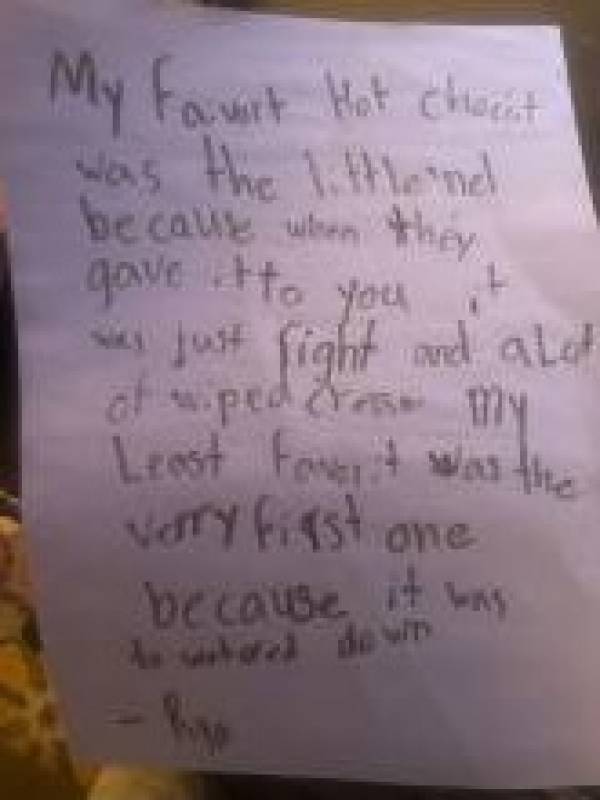 My Favirt Hot
was the little
because when they
gave it to you it
was just right and a Lot
of wiped cream My
Least Faverit was the
verry first one
because it was
to watored down
-